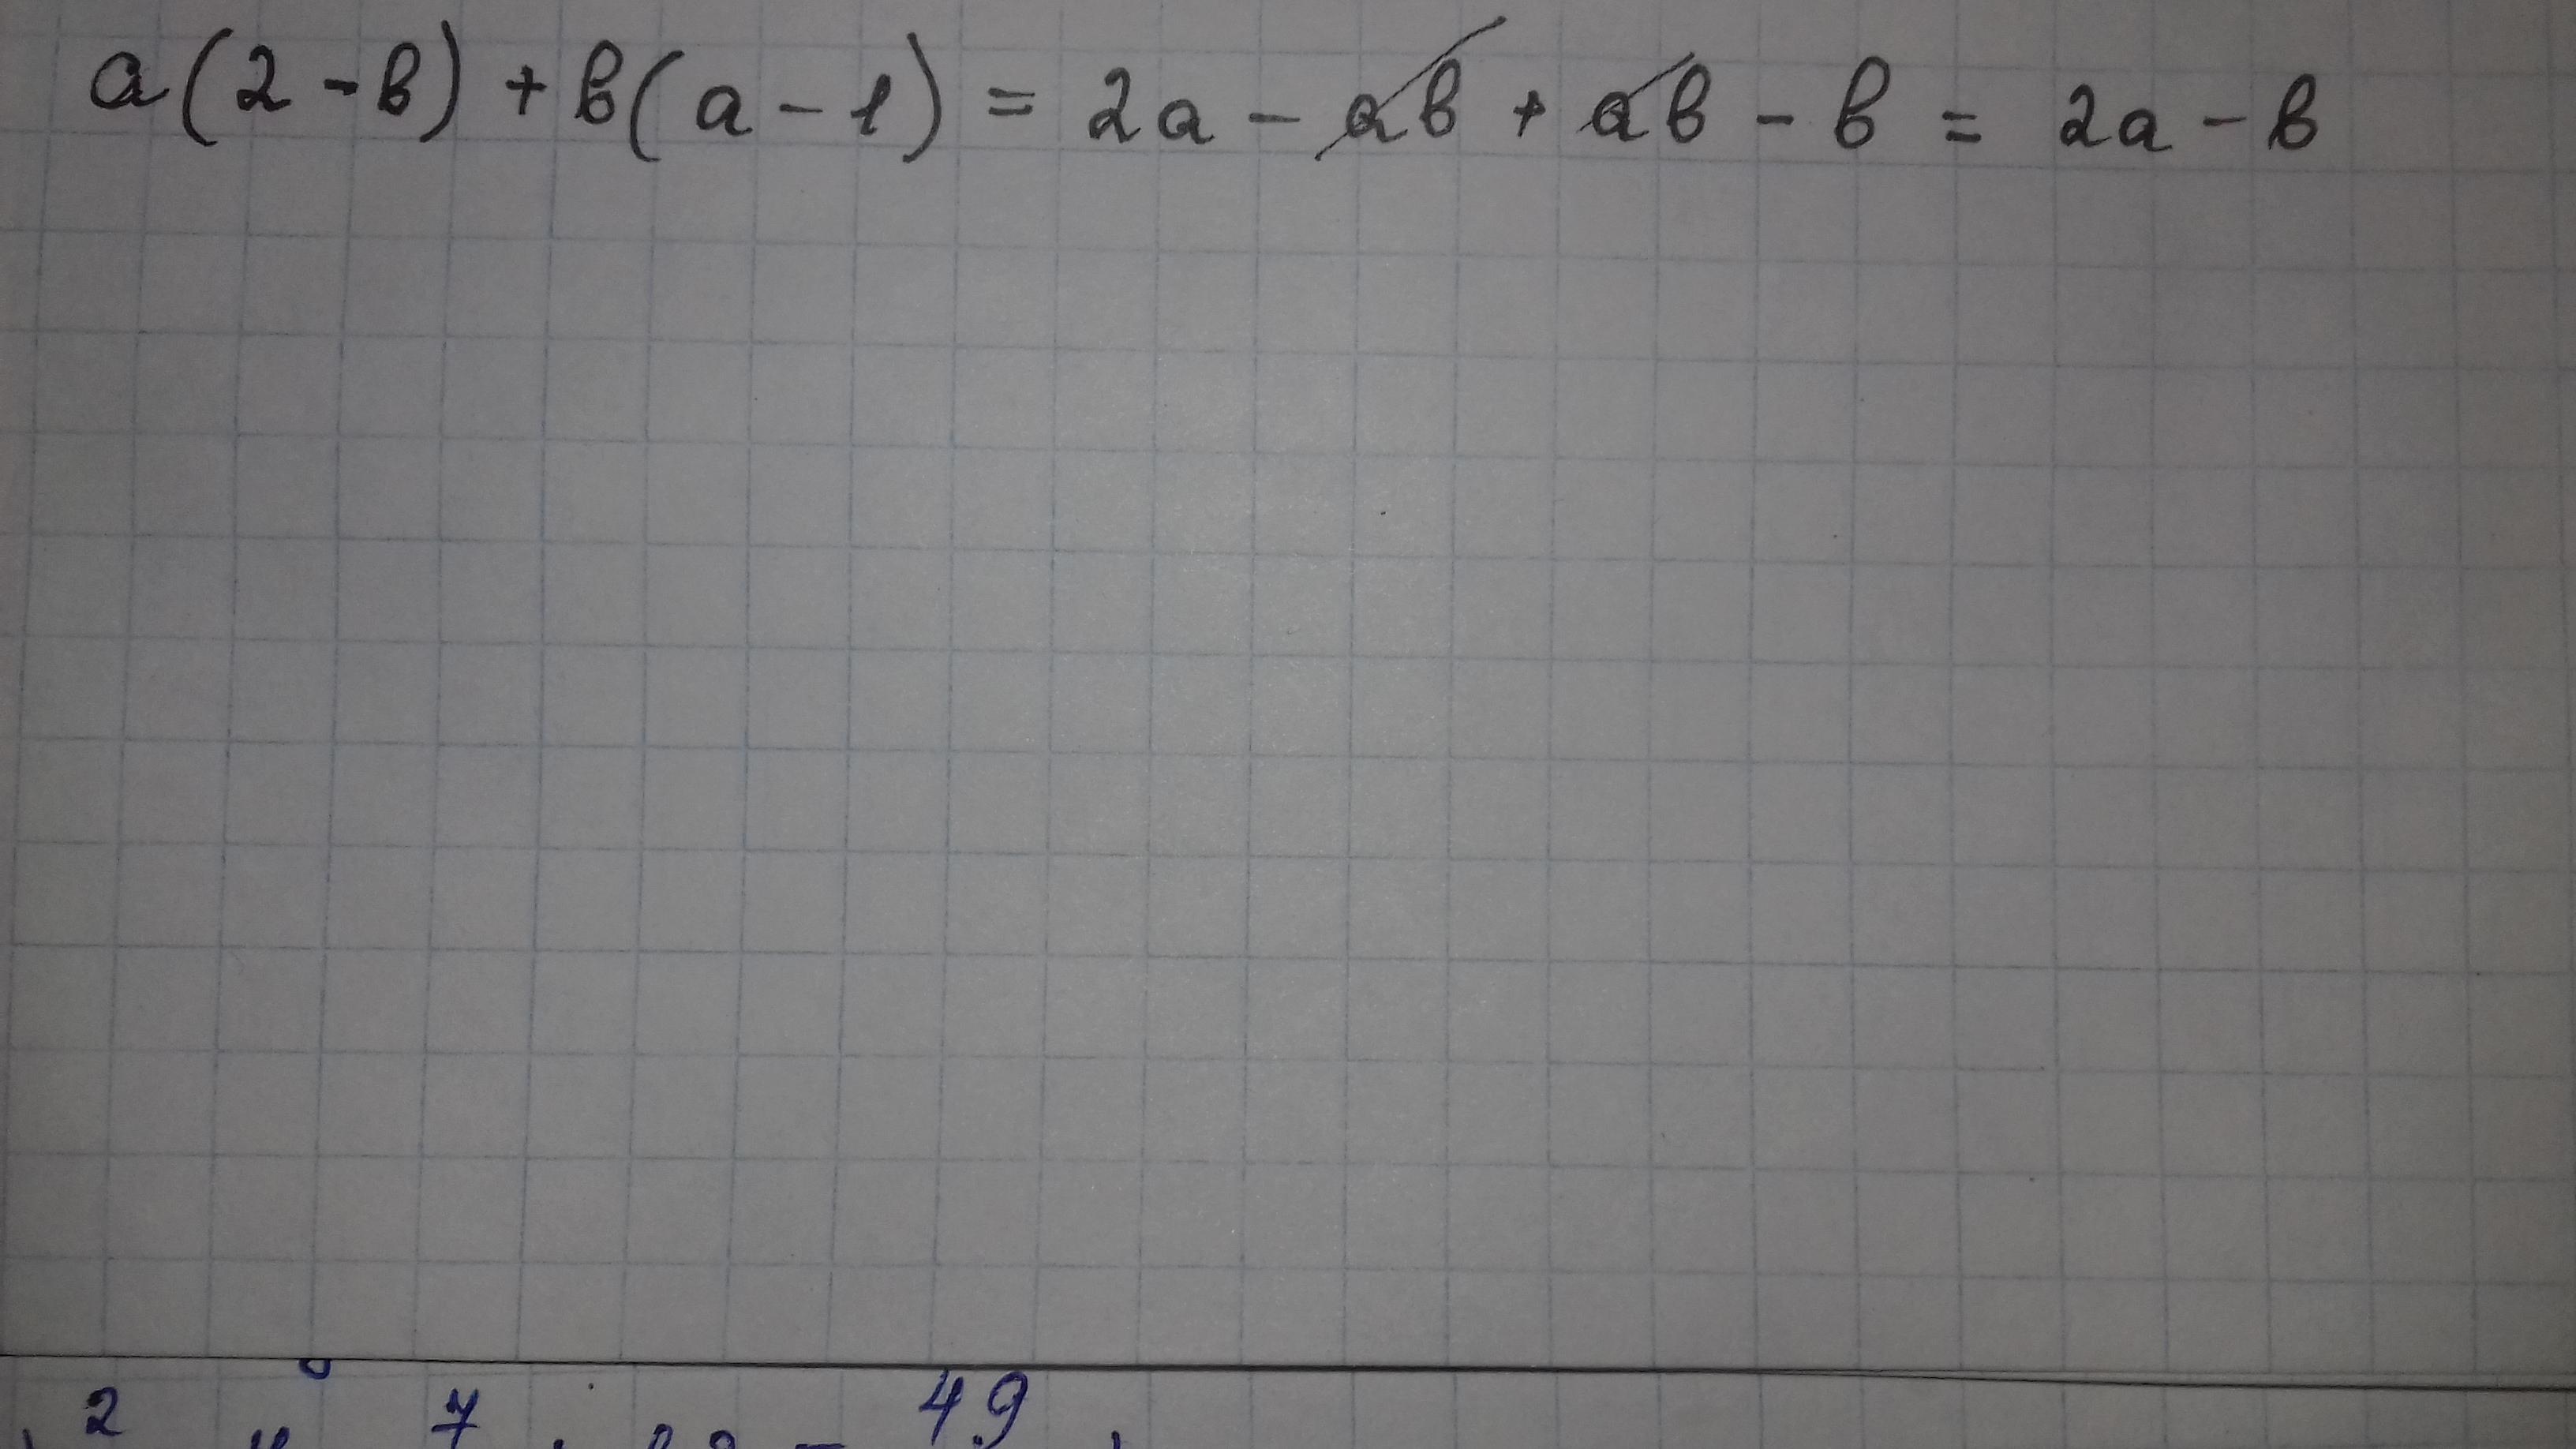 a(2-b)+b(a-1)=2a-ab+ab-b=2a-b
2 7 49